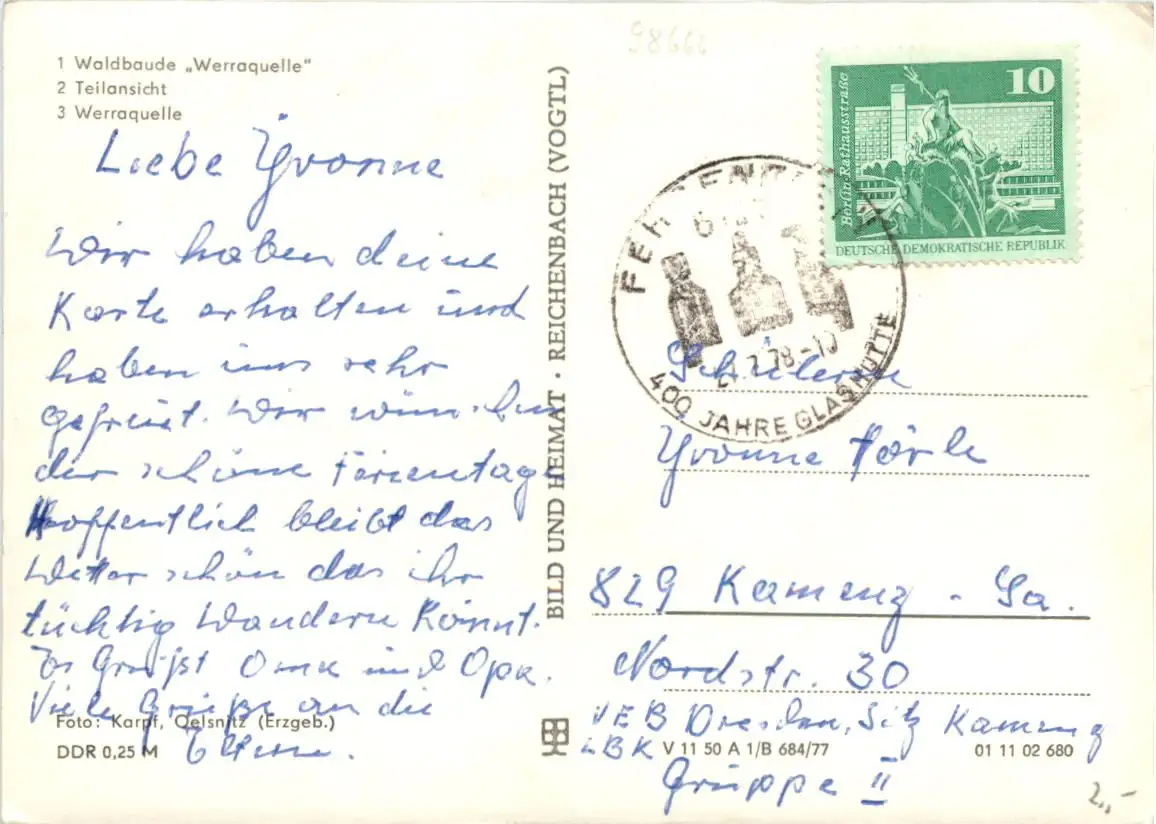 1 Waldbaude „Werraquelle"
2 Teilansicht
3 Werraquelle
Liebe Yvonne
Wir haben deine
Karte erhalten und
haben uns sehr
gefreut. Wir wünschen
dir schöne Ferientage
Hoffentlich bleibt das
Wetter schön das ihr
tüchtig Wandern Könnt.
Es Grüßt Oma und Opa.
Viele Grüße an die
Eltern.
Foto: Karpf, Oelsnitz (Erzgeb.)
DDR 0,25 M
BILD UND HEIMAT · REICHENBACH (VOGTL)
98666
10
Berlin·Rathausstraße
DEUTSCHE DEMOKRATISCHE REPUBLIK
78-10
400 JAHRE GLASHÜTTE
Schülerin
Yvonne
829 Kamenz - Sa.
Nordstr. 30
VEB Dresden, Sitz Kamenz
LBK
V 11 50 A 1/B 684/77
01 11 02 680
Gruppe II
2,-